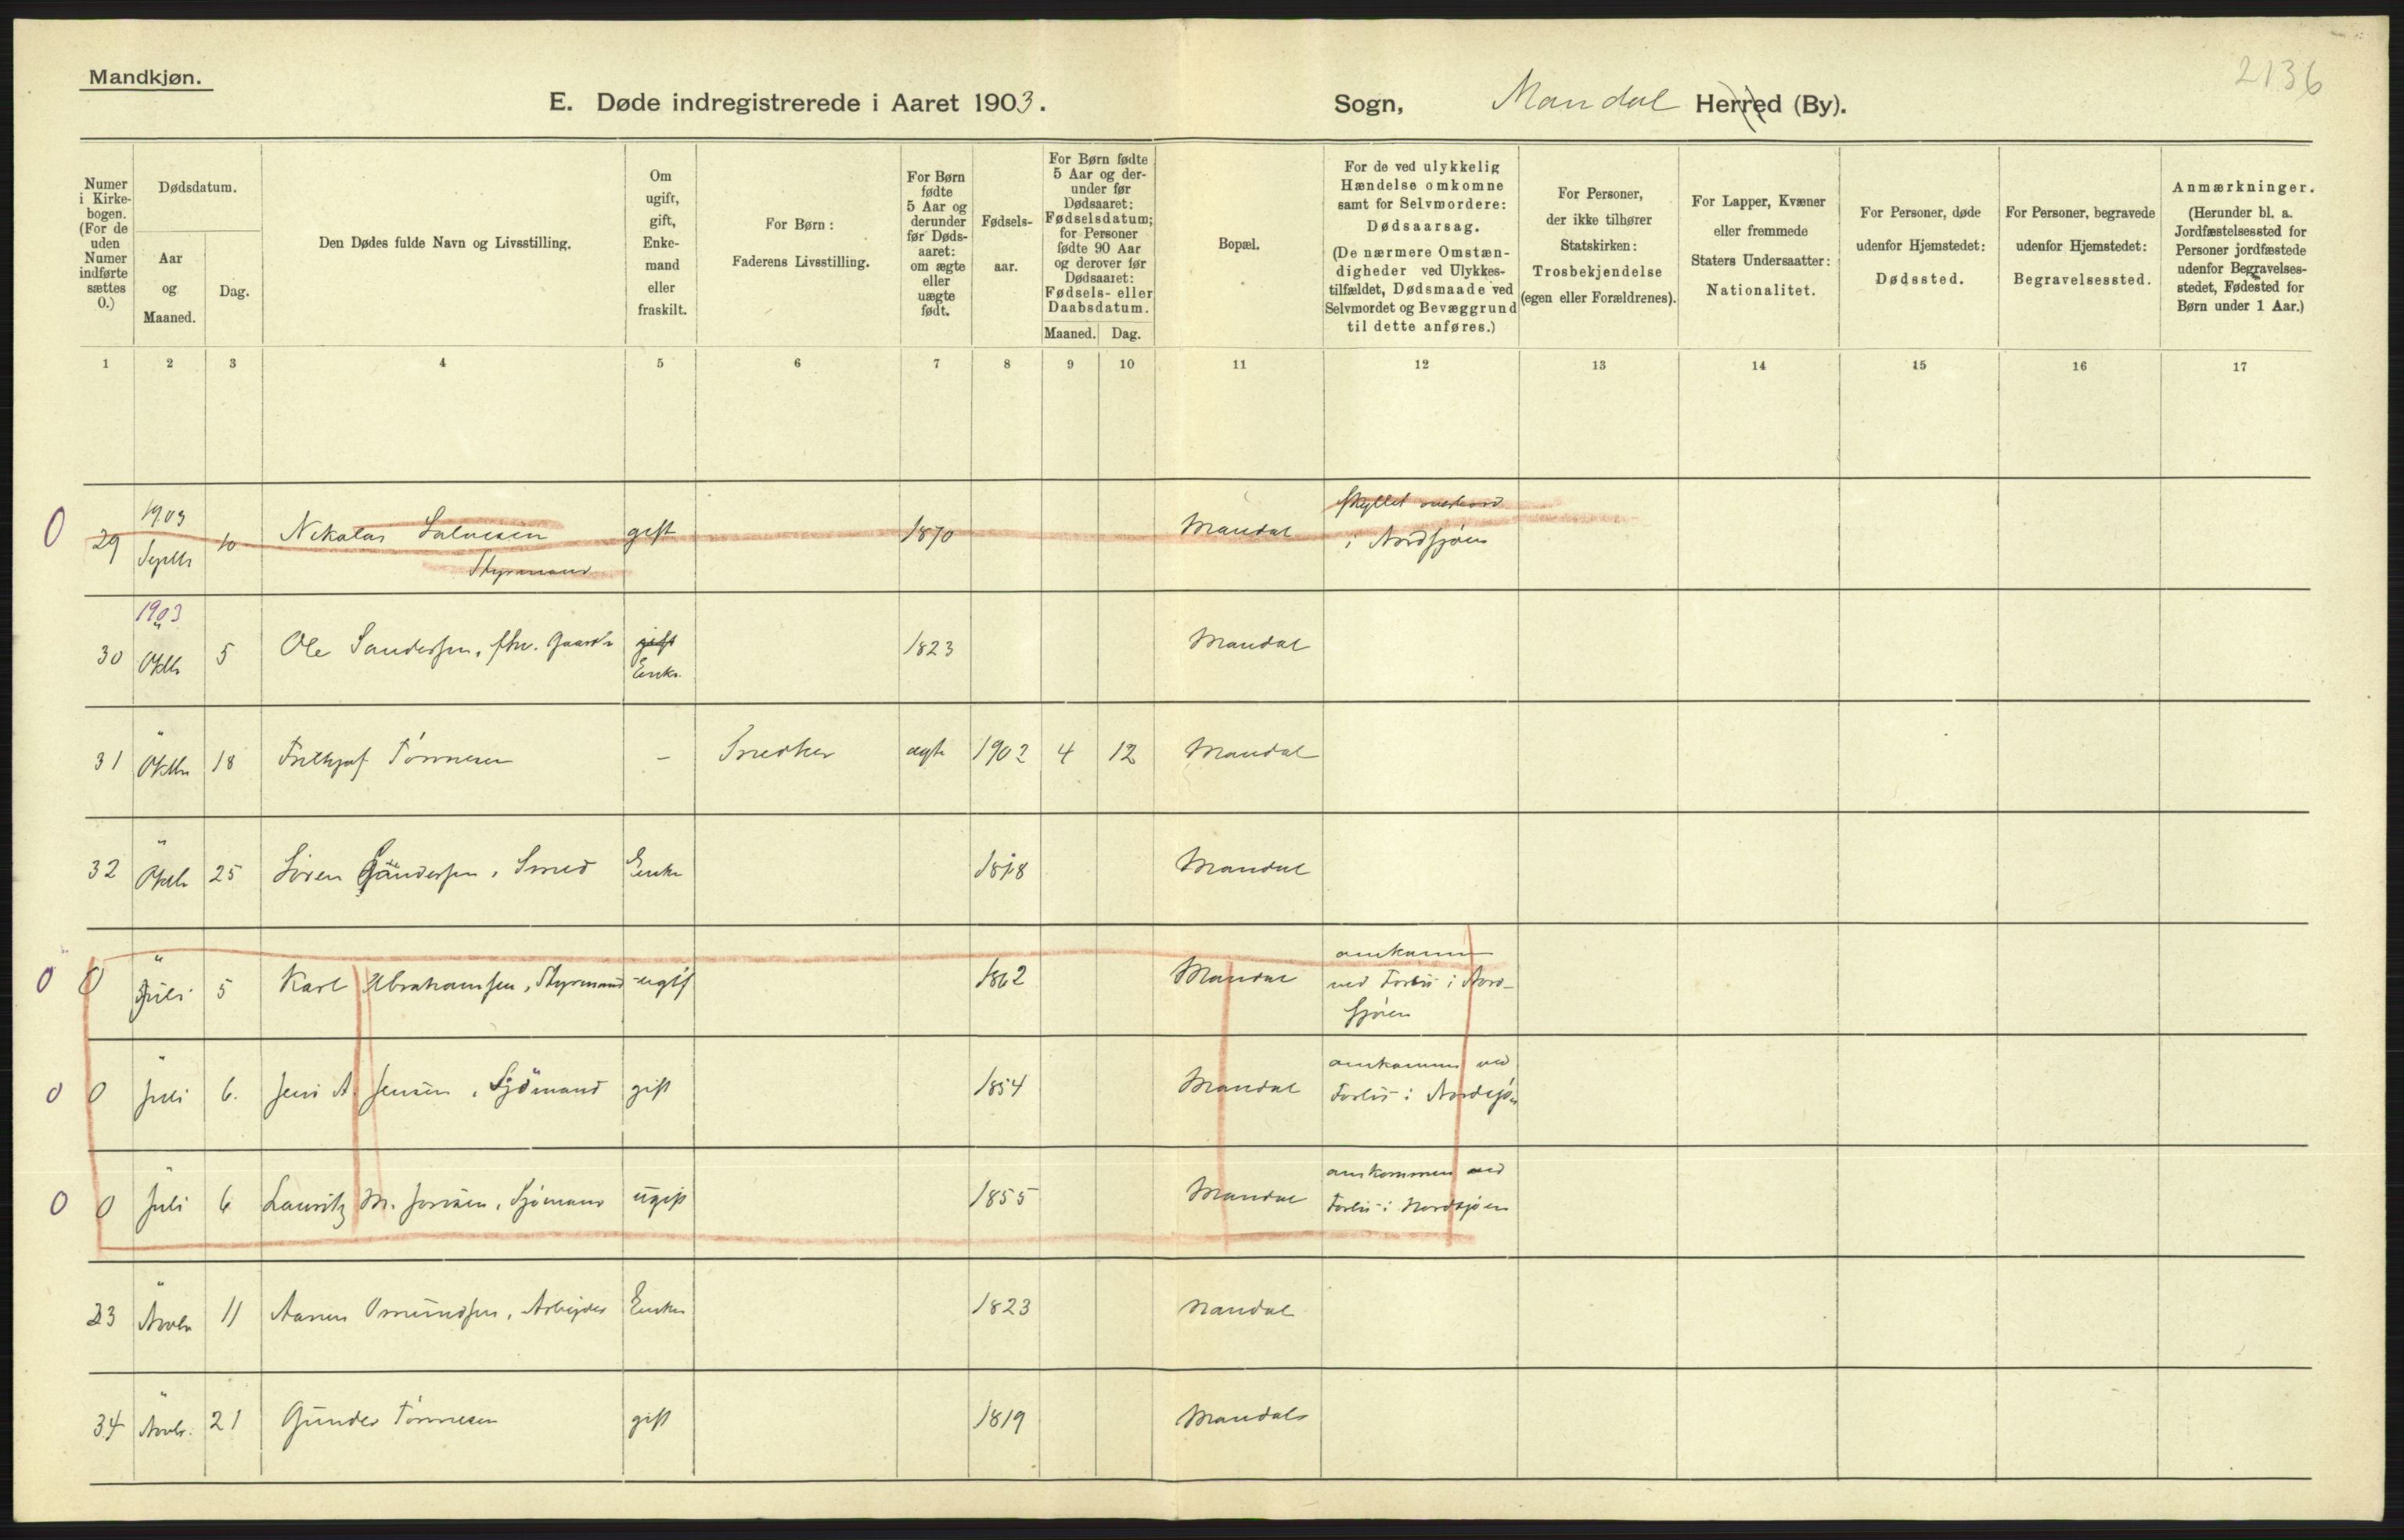 Mandkjøn.
2136
E. Døde indregistrerede i Aaret 1903.
Sogn, Mandal Herred (By).
Numer i Kirkebogen. (For de uden Numer indførte sættes 0.)
Dødsdatum.
Aar og Maaned.
Dag.
Den Dødes fulde Navn og Livsstilling.
Om ugift, gift, Enkemand eller fraskilt.
For Børn: Faderens Livsstilling.
For Børn fødte 5 Aar og derunder før Dødsaaret: om ægte eller uægte født.
Fødselsaar.
For Børn fødte 5 Aar og derunder før Dødsaaret: Fødselsdatum; for Personer fødte 90 Aar og derover før Dødsaaret: Fødsels- eller Daabsdatum.
Maaned. Dag.
Bopæl.
For de ved ulykkelig Hændelse omkomne samt for Selvmordere: Dødsaarsag. (De nærmere Omstændigheder ved Ulykkestilfældet, Dødsmaade ved Selvmordet og Bevæggrund til dette anføres.)
For Personer, der ikke tilhører Statskirken: Trosbekjendelse (egen eller Forældrenes).
For Lapper, Kvæner eller fremmede Staters Undersaatter: Nationalitet.
For Personer, døde udenfor Hjemstedet: Dødssted.
For Personer, begravede udenfor Hjemstedet: Begravelsessted.
Anmærkninger. (Herunder bl. a. Jordfæstelsessted for Personer jordfæstede udenfor Begravelsesstedet, Fødested for Børn under 1 Aar.)
1 2 3 4 5 6 7 8 9 10 11 12 13 14 15 16 17
0 29 1903 Septbr 10 Nikolai Salvesen Styrmand gift 1870 Mandal Skyllet overbord i Nordsjøen
30 1903 Oktbr 5 Ole Sandersen, fhv. gift Enke. 1823 Mandal
31 " Oktbr 18 Frithjof Tønnesen – Snedker ægte 1902 4 12 Mandal
32 " Oktbr 25 Søren Gundersen, Smed Enke 1818 Mandal
0 0 " Juli 5 Karl Abrahamsen, Styrmand ugift 1862 Mandal omkommen ved Forlis i Nordsjøen
0 0 " Juli 6. Jens A. Jensen, Sjömand gift 1854 Mandal omkommen ved Forlis i Nordsjøen
0 0 " Juli 6 Lauritz M. Sjömand ugift 1855 Mandal omkommen ved Forlis i Nordsjøen
33 " Novbr 11 Aanen Omundsen, Arbejder Enke 1823 Mandal
34 " Novbr. 21 Gunder Tønnesen gift 1819 Mandal